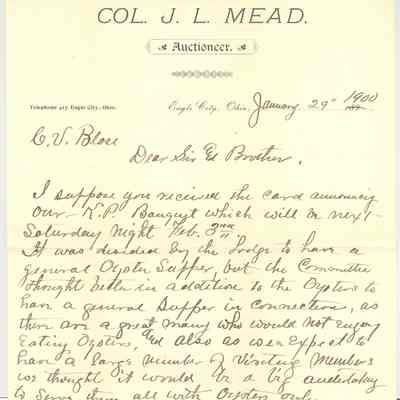 COL. J. L. MEAD.
Auctioneer.
Telephone 417 Eagle City, Ohio.
Eagle City, Ohio, January 29" 1900
C. V. Blose
Dear Sir & Brother,
I suppose you received the card announcing
our K.P. Banquet which will be next
Saturday night Feb. 3rd.
It was decided by the Lodge to have a
general Oyster Supper, but the Committee
thought better in addition to the Oysters to
have a general Supper in connection, as
there are a great many who would not enjoy
Eating Oysters, and also as we Expect to
have a large number of Visiting Members
we thought it would be a big undertaking
to serve them all with Oysters only